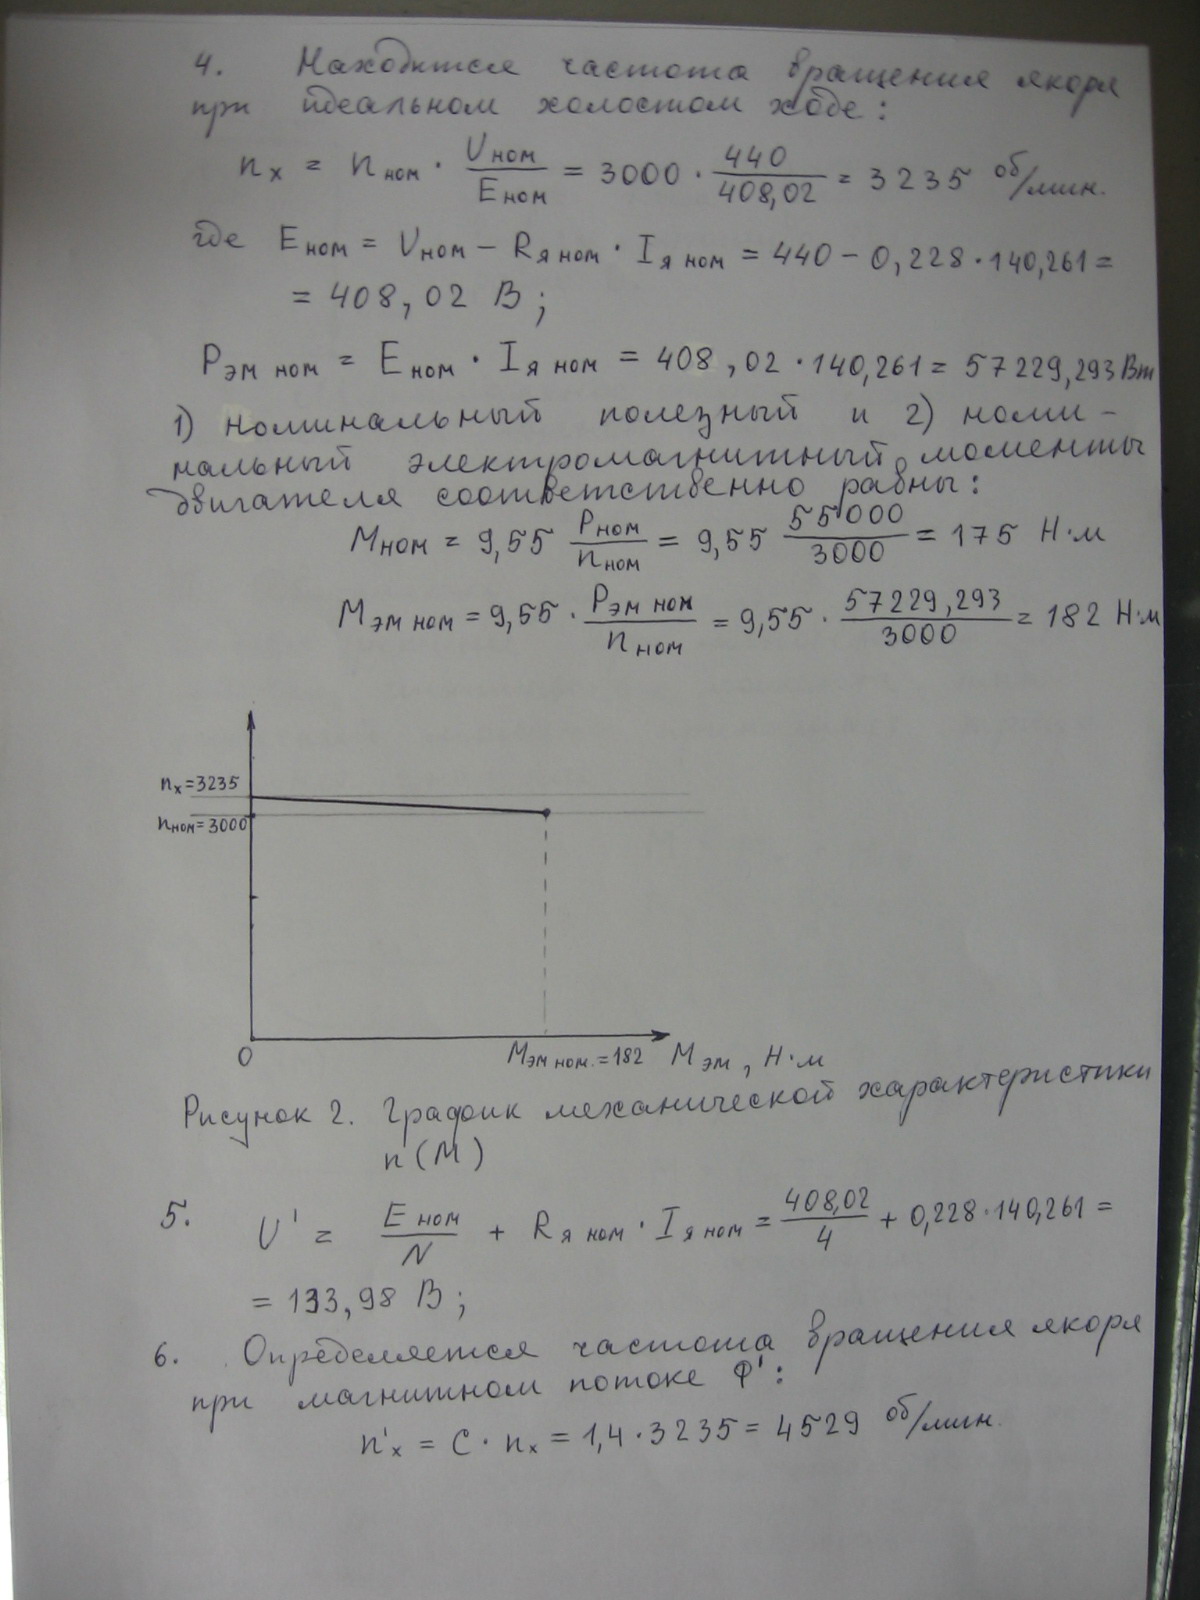 4. Находится частота вращения якоря
при идеальном холостом ходе:
nₓ = nном · Uном/Eном = 3000 · 440/408,02 = 3235 об/мин.
где Eном = Uном – Rя ном · Iя ном = 440 – 0,228 · 140,261 =
= 408,02 В;
Pэм ном = Eном · Iя ном = 408,02 · 140,261 = 57229,293 Вт
1) номинальный полезный и 2) номи-
нальный электромагнитный моменты
двигателя соответственно равны:
Mном = 9,55 Pном/nном = 9,55 55000/3000 = 175 Н·м
Mэм ном = 9,55 · Pэм ном/nном = 9,55 · 57229,293/3000 = 182 Н·м
nₓ=3235
nном=3000
0
Mэм ном.=182 Mэм, Н·м
Рисунок 2. График механической характеристики
n(M)
5. U' = Eном/N + Rя ном · Iя ном = 408,02/4 + 0,228·140,261 =
= 133,98 В;
6. Определяется частота вращения якоря
при магнитном потоке Ф':
n'ₓ = C · nₓ = 1,4 · 3235 = 4529 об/мин.